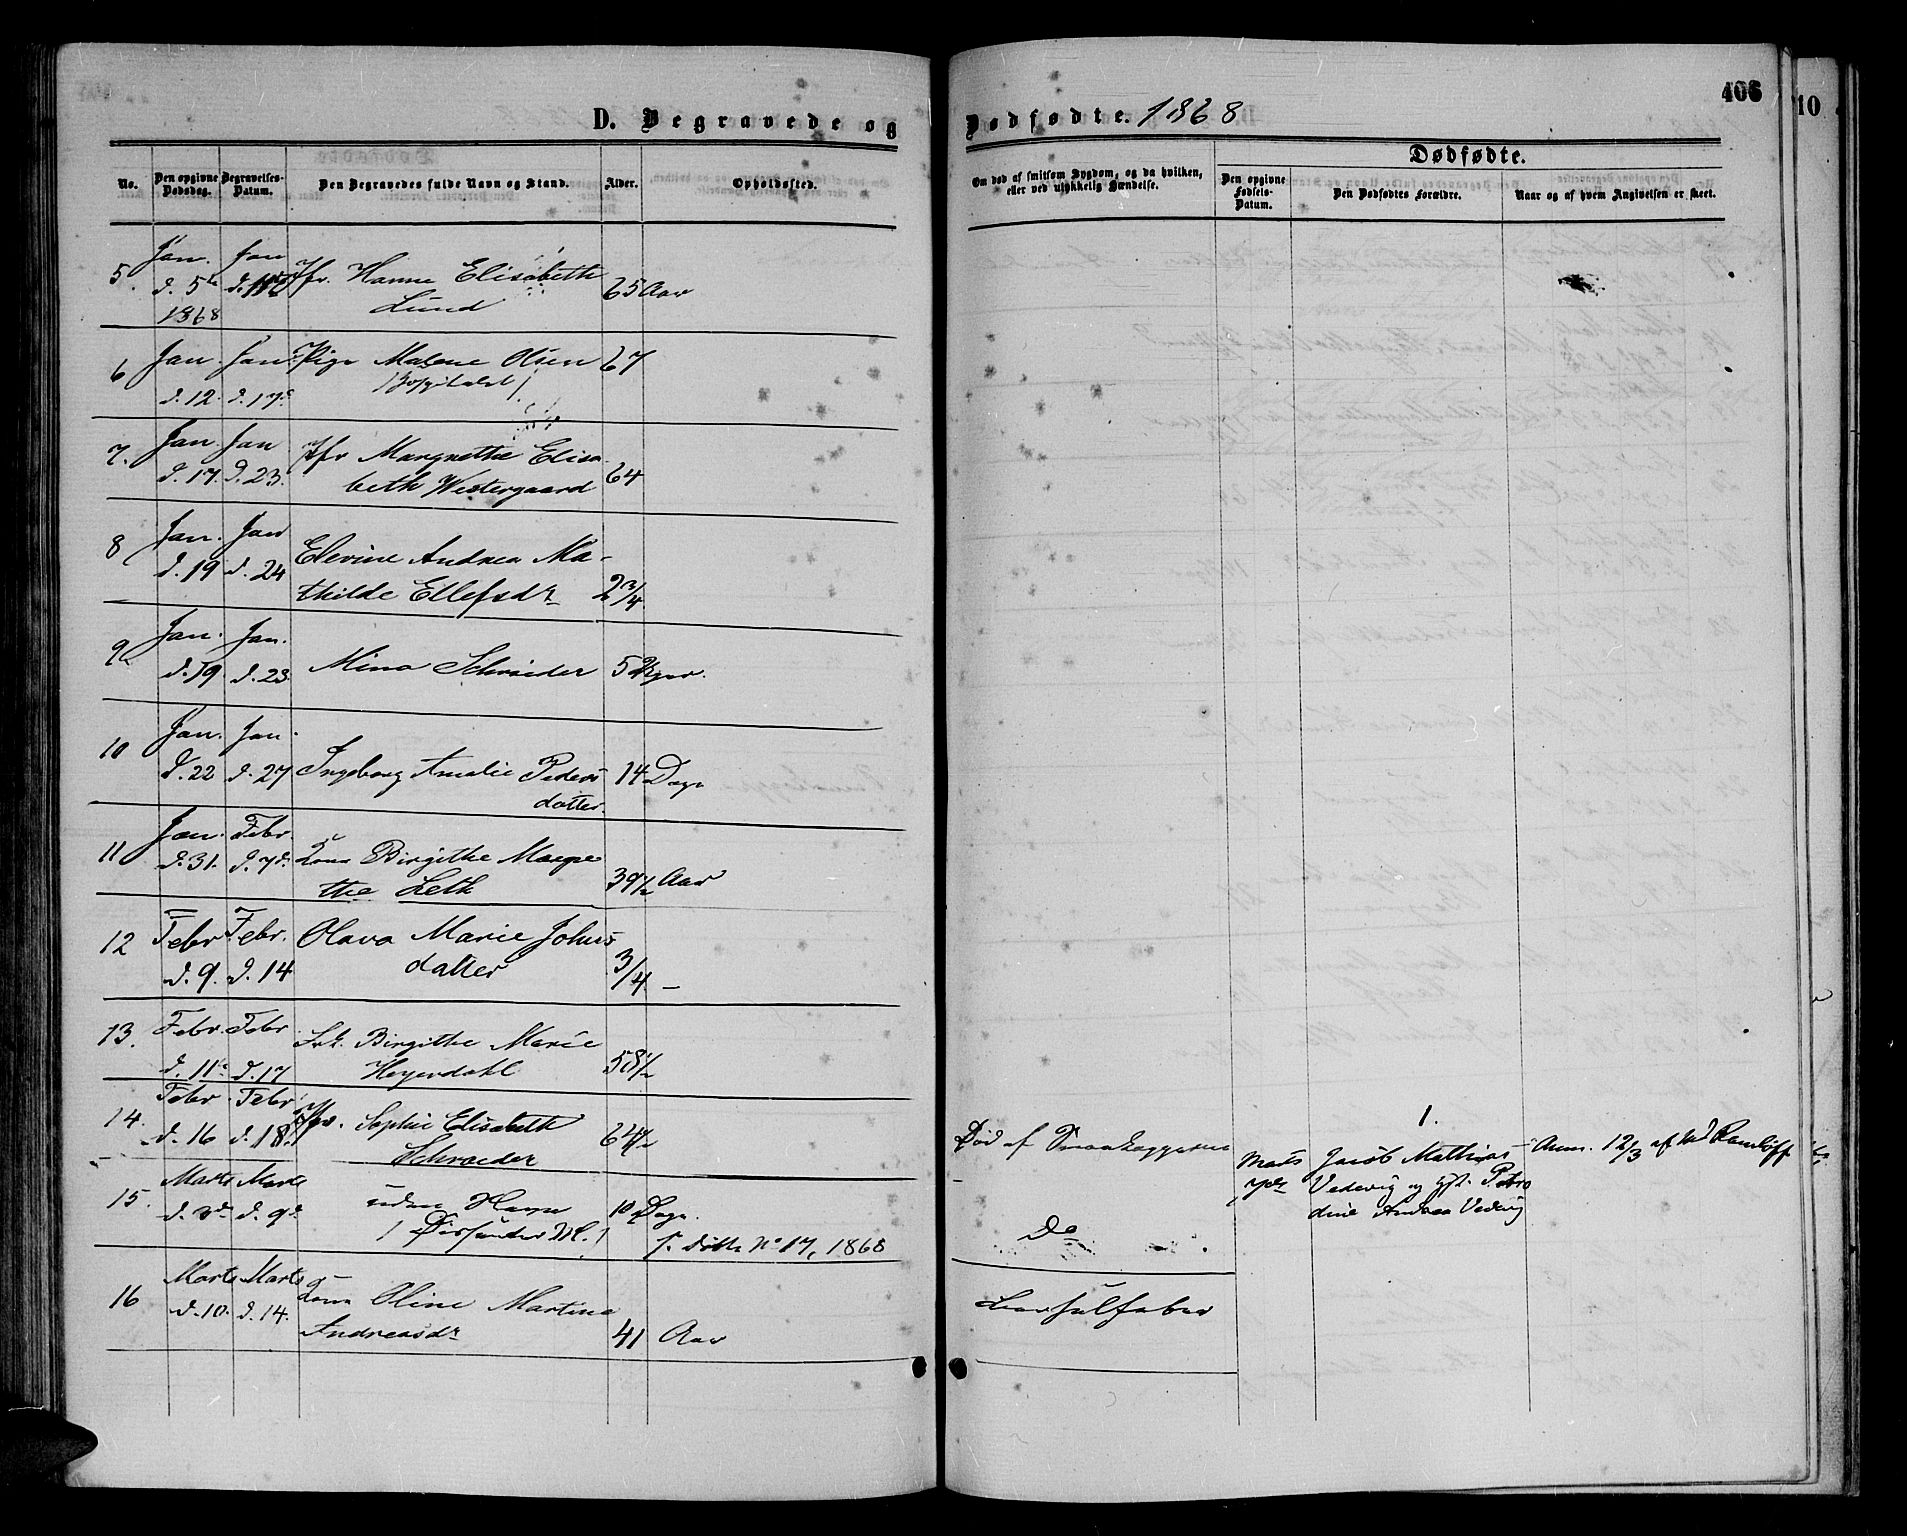 D. Begravede og
Dødfødte. 1868
406
10
No.
Den opgivne Dødsdag.
Begravelses-Datum.
Den Begravedes fulde Navn og Stand.
Alder.
Opholdssted.
Om død af smitsom Sygdom, og da hvilken,
eller ved ulykkelig Hændelse.
Dødfødte.
Den opgivne Fødsels-Datum.
Den Dødfødtes Forældre.
Naar og af hvem Angivelsen er skeet.
5. Jan. d. 5te 1868 Jan d. Jfr. Hanne Elisabeth
Lund 65 Aar
6 Jan d. 12. Jan d. 17de Pige Malene Olsen 67
/Hospitalet/
7. Jan. d. 17. Jan d. 23. Jfr Margrethe Elisa-
beth Westergaard 64
8 Jan. d. 19 Jan d. 24 Elevine Andrea Ma-
thilde Ellefsdr 2 3/4
9. Jan. d. 19. Jan. d. 23. Mina Schrøder 5 Uger.
10 Jan. d. 22 Jan. d. 27 Ingeborg Amalie Peders-
datter. 14 Dage
11 Jan. d. 31. Febr. d. 7de Kone Birgithe Margre
the Leth 39 1/2 Aar
12 Febr d. 9. Febr. d. 14 Olava Marie Johns-
datter 3/4 —
13. Febr. d. 11te Febr d. 17 Birgithe Marie
Heyerdahl 58 1/2
14. Febr d. 16 Febr d. 18de Jfr. Sophie Elisabeth
Schrøder 64 1/2
15. Marts d. 3de Marts d. 9de uden Navn 10 Dage.
f. Døttr No 17, 1868
16 Marts d. 10. Marts d. 14. Kone Oline Martine
Andreasdr 41 Aar
Død af
Do
Barselfeber
1.
Marts
Jacob Mathias
Vedevig og Petro
dine Andrea Vedevig
Anm. 12/3 af Md Ramløff